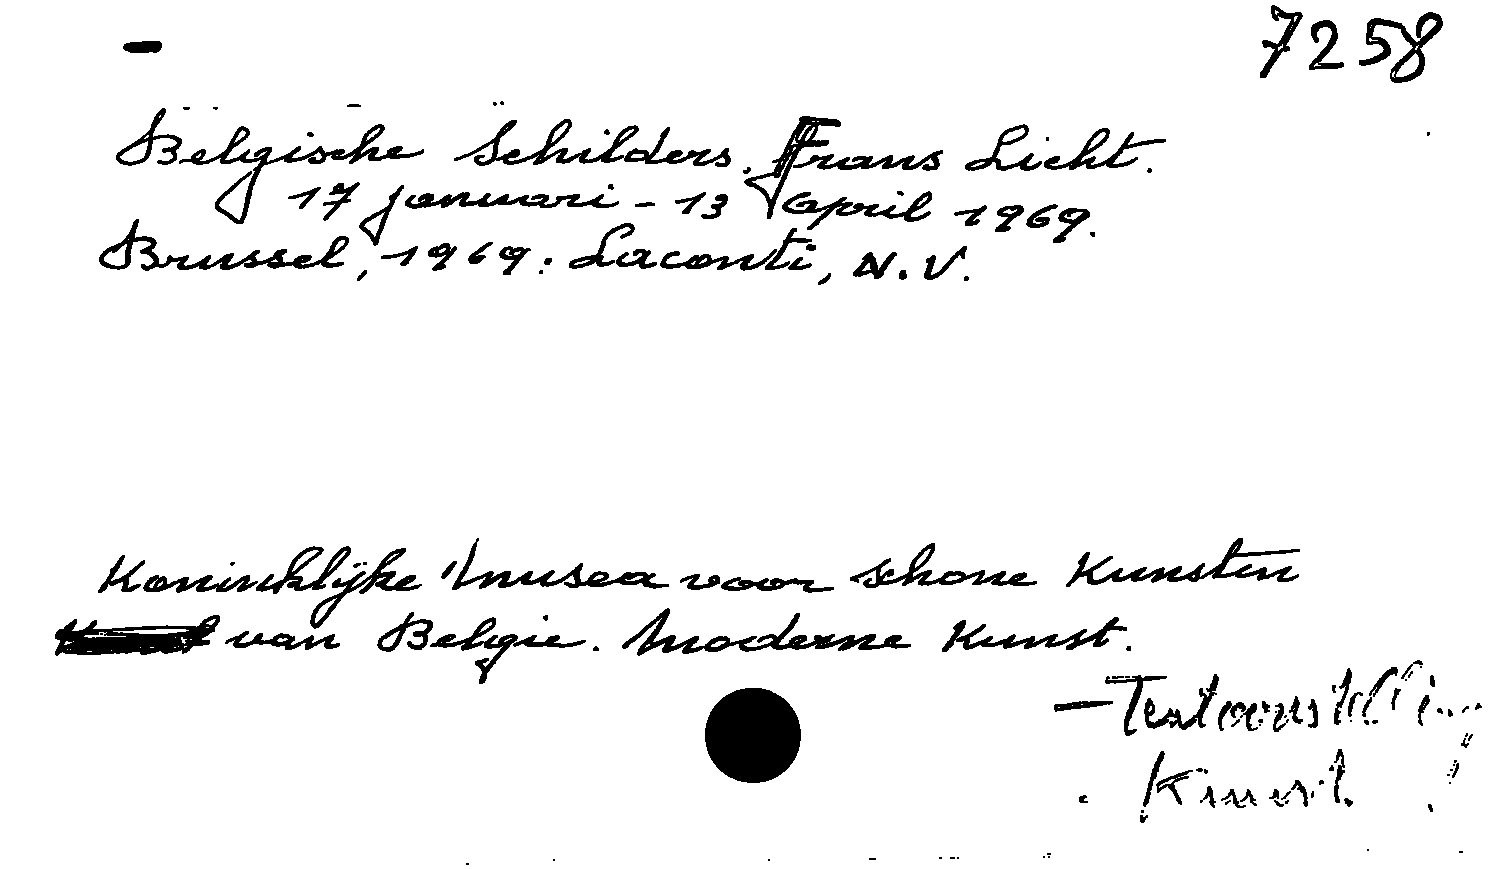 7258
Belgische Schilders. Frans Licht.
17 januari - 13 April 1969.
Brussel, 1969. Laconti, N.V.
Koninklijke Musea voor Schone Kunsten
van Belgie. Moderne Kunst.
- Tentoonstelling
Kunst.